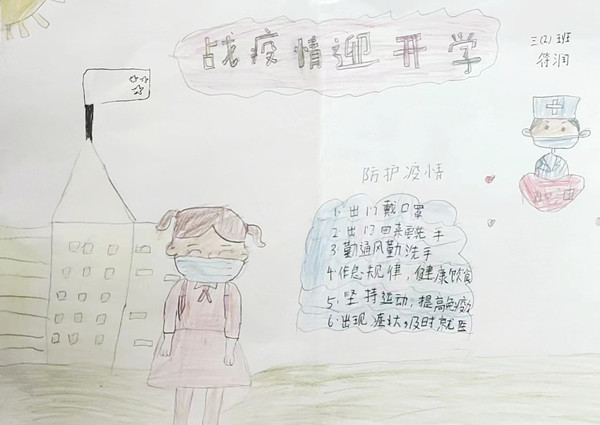 战疫情迎开学
三(2)班
防护疫情
1.出门戴口罩
2.出门回来要洗手
3.勤通风勤洗手
4.作息规律,健康饮食
5.坚持运动,提高免疫
6.出现症状,及时就医